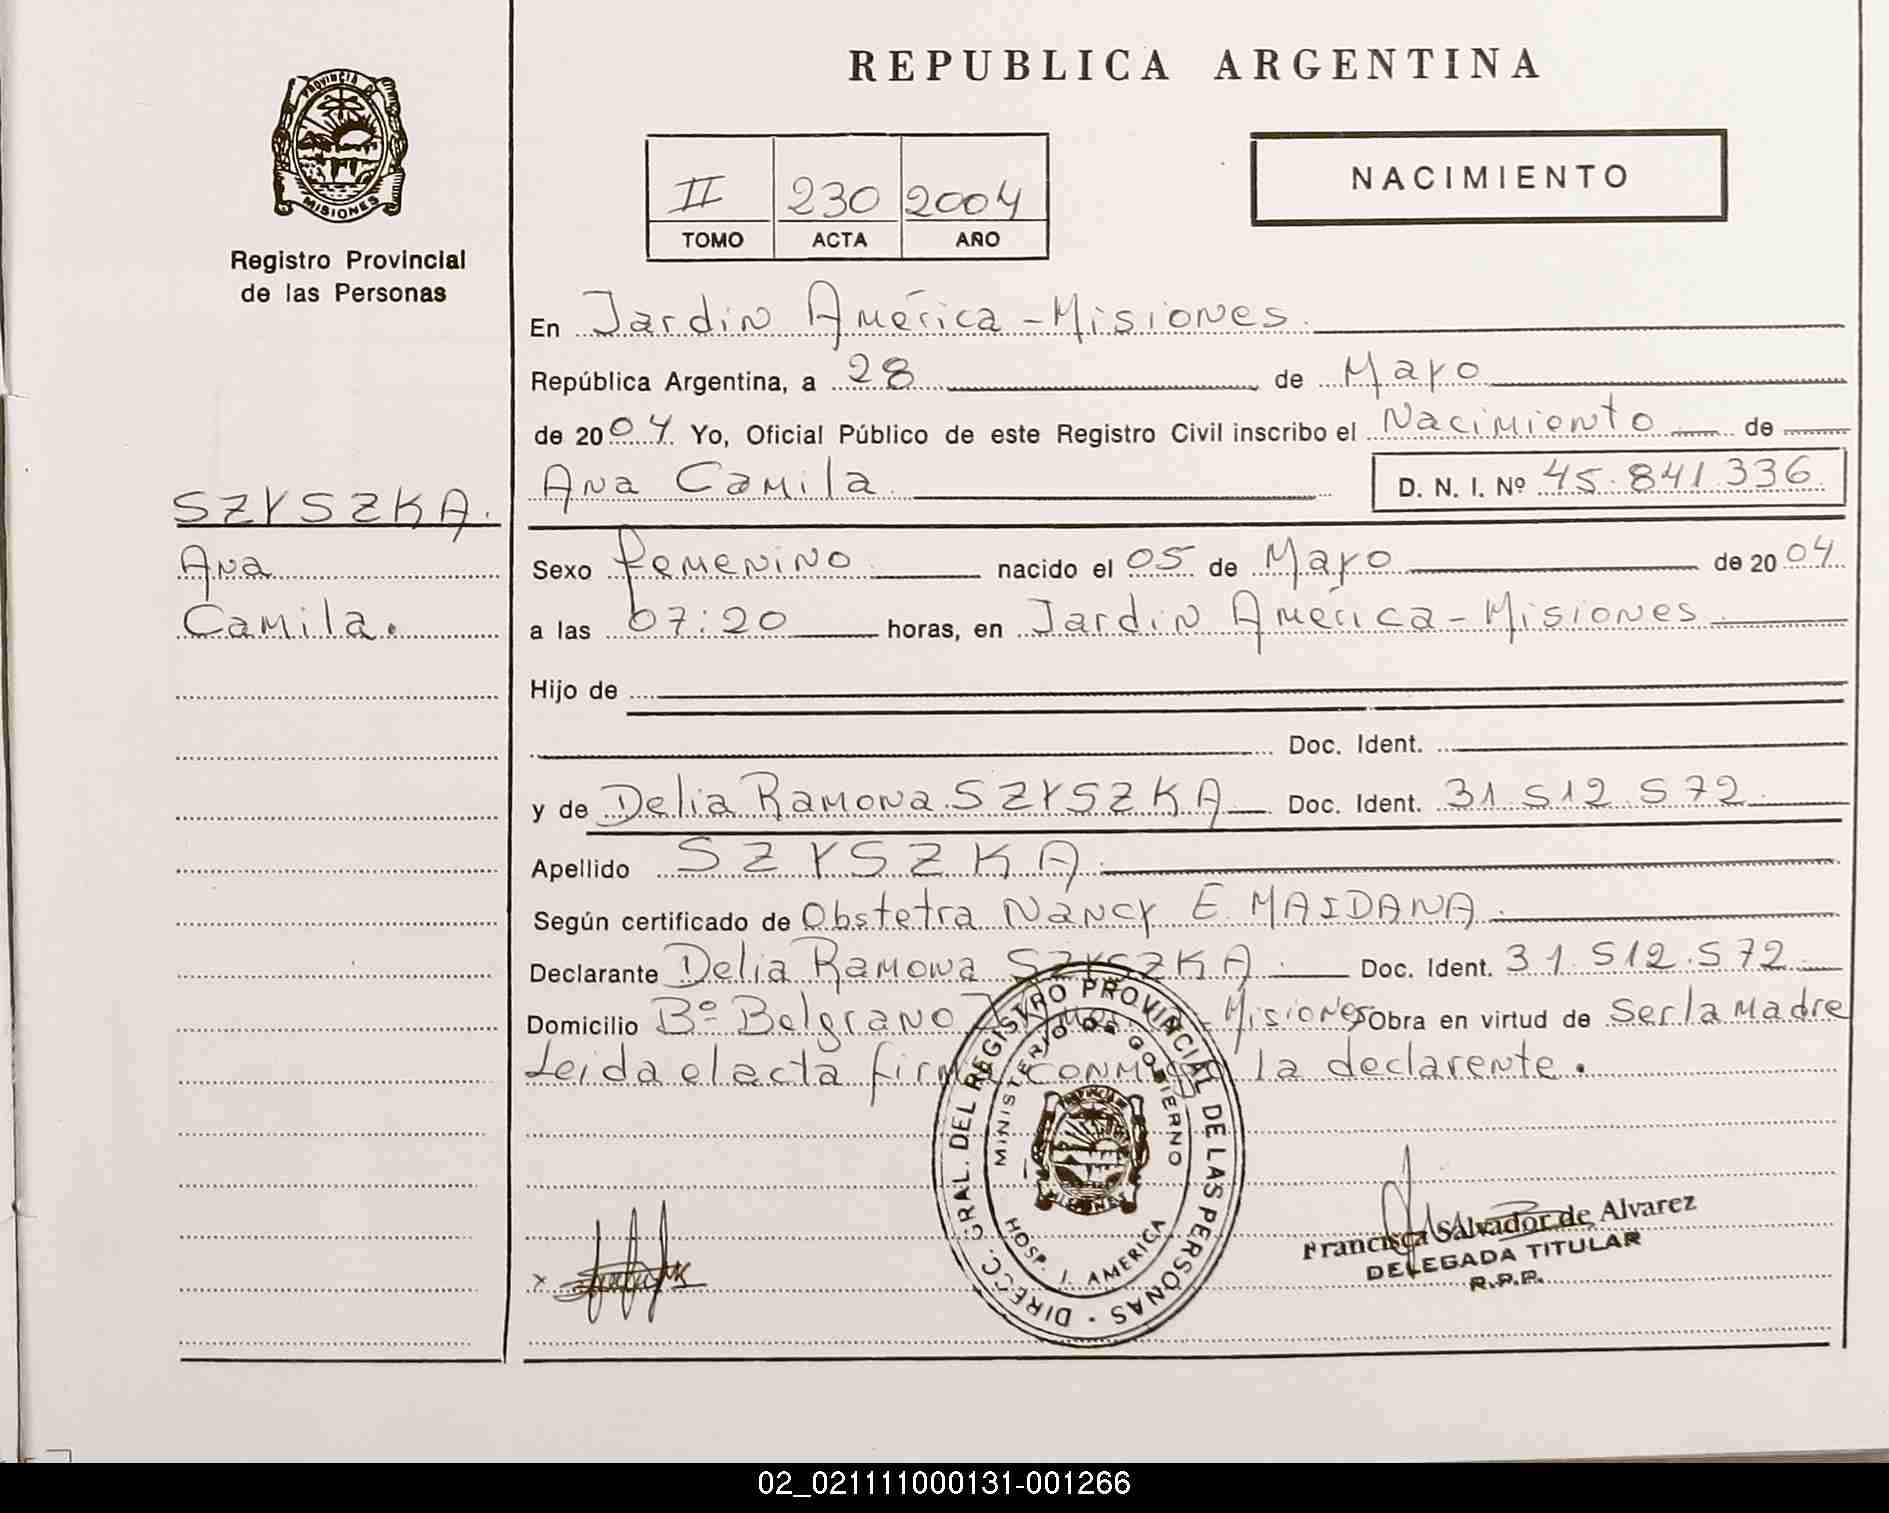 REPUBLICA ARGENTINA
PROVINCIA DE
MISIONES
Registro Provincial
de las Personas
II 230 2004
TOMO ACTA AÑO
NACIMIENTO
En Jardin América - Misiones.
República Argentina, a 28 de Mayo
de 2004 Yo, Oficial Público de este Registro Civil inscribo el Nacimiento de
Ana Camila D. N. I. Nº 45.841.336
SZYSZKA.
Ana
Camila.
Sexo femenino nacido el 05 de Mayo de 2004
a las 07:20 horas, en Jardin América - Misiones
Hijo de
Doc. Ident.
y de Delia Ramona SZYSZKA Doc. Ident. 31.512.572
Apellido SZYSZKA.
Según certificado de Obstetra Nancy E. MAIDANA
Declarante Delia Ramona SZYSZKA. Doc. Ident. 31.512.572
Domicilio Bº Belgrano Misiones Obra en virtud de Ser la Madre
Leida el acta firma conmigo la declarente.
DIRECC. GRAL. DEL REGISTRO PROVINCIAL DE LAS PERSONAS
MINISTERIO DE GOBIERNO
MISIONES
HOSP. J. AMERICA
x
Francisca Salvador de Alvarez
DELEGADA TITULAR
R.P.P.
02_021111000131-001266